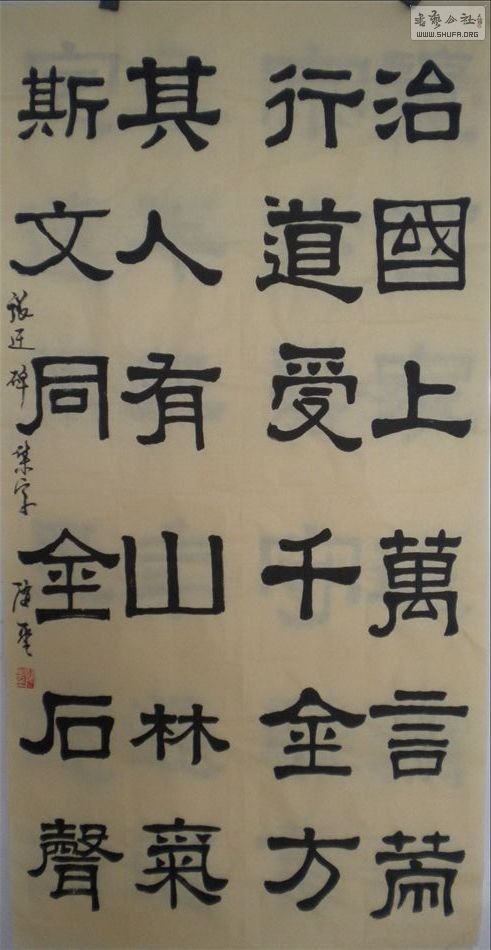 治國上萬言策
行道受千金方
其人有山林氣
斯文同金石聲
張迁碑集字
書藝公社
WWW.SHUFA.ORG